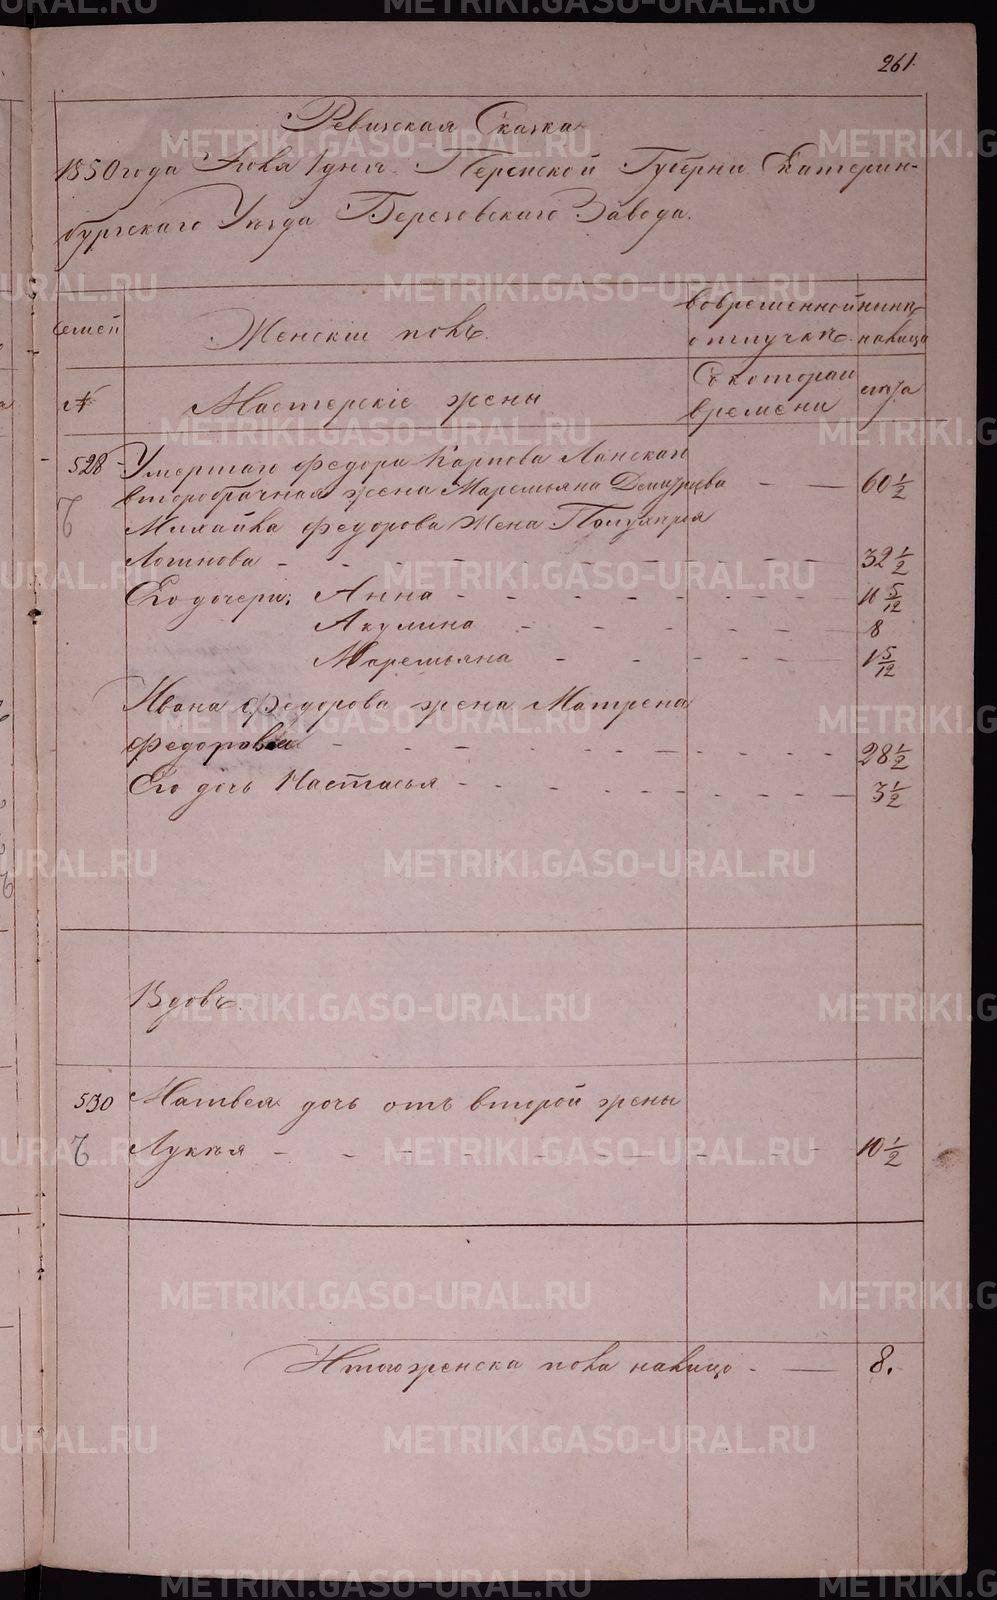 261.
Ревизская Сказка
1850 года Июня 1 дня. Пермской Губернии Екатерин-
бургскаго Уезда Березовскаго Завода.
семей
Женский полъ.
во временной
отлучке.
ныне
налицо
№
Мастерскіе жены
Съ котораго
времени
лета
528
Умершаго Федора Карпова Ланскаго
второбрачная жена Маремьяна — — 60 1/2
Михайла Федорова Жена
Логинова - - - - - 32 1/2
Его дочери: Анна - - - - - 10 5/12
Акулина - - - - - 8
Маремьяна - - - - - 1 5/12
Ивана Федорова жена Матрена
Федорова - - - - - 28 1/2
Его дочь Настасья - - - - - 3 1/2
Вдовъ.
530
Матвея дочь отъ второй жены
Лукея - - - - - 10 1/2
Итого женска пола налицо - — 8.
METRIKI.GASO-URAL.RU